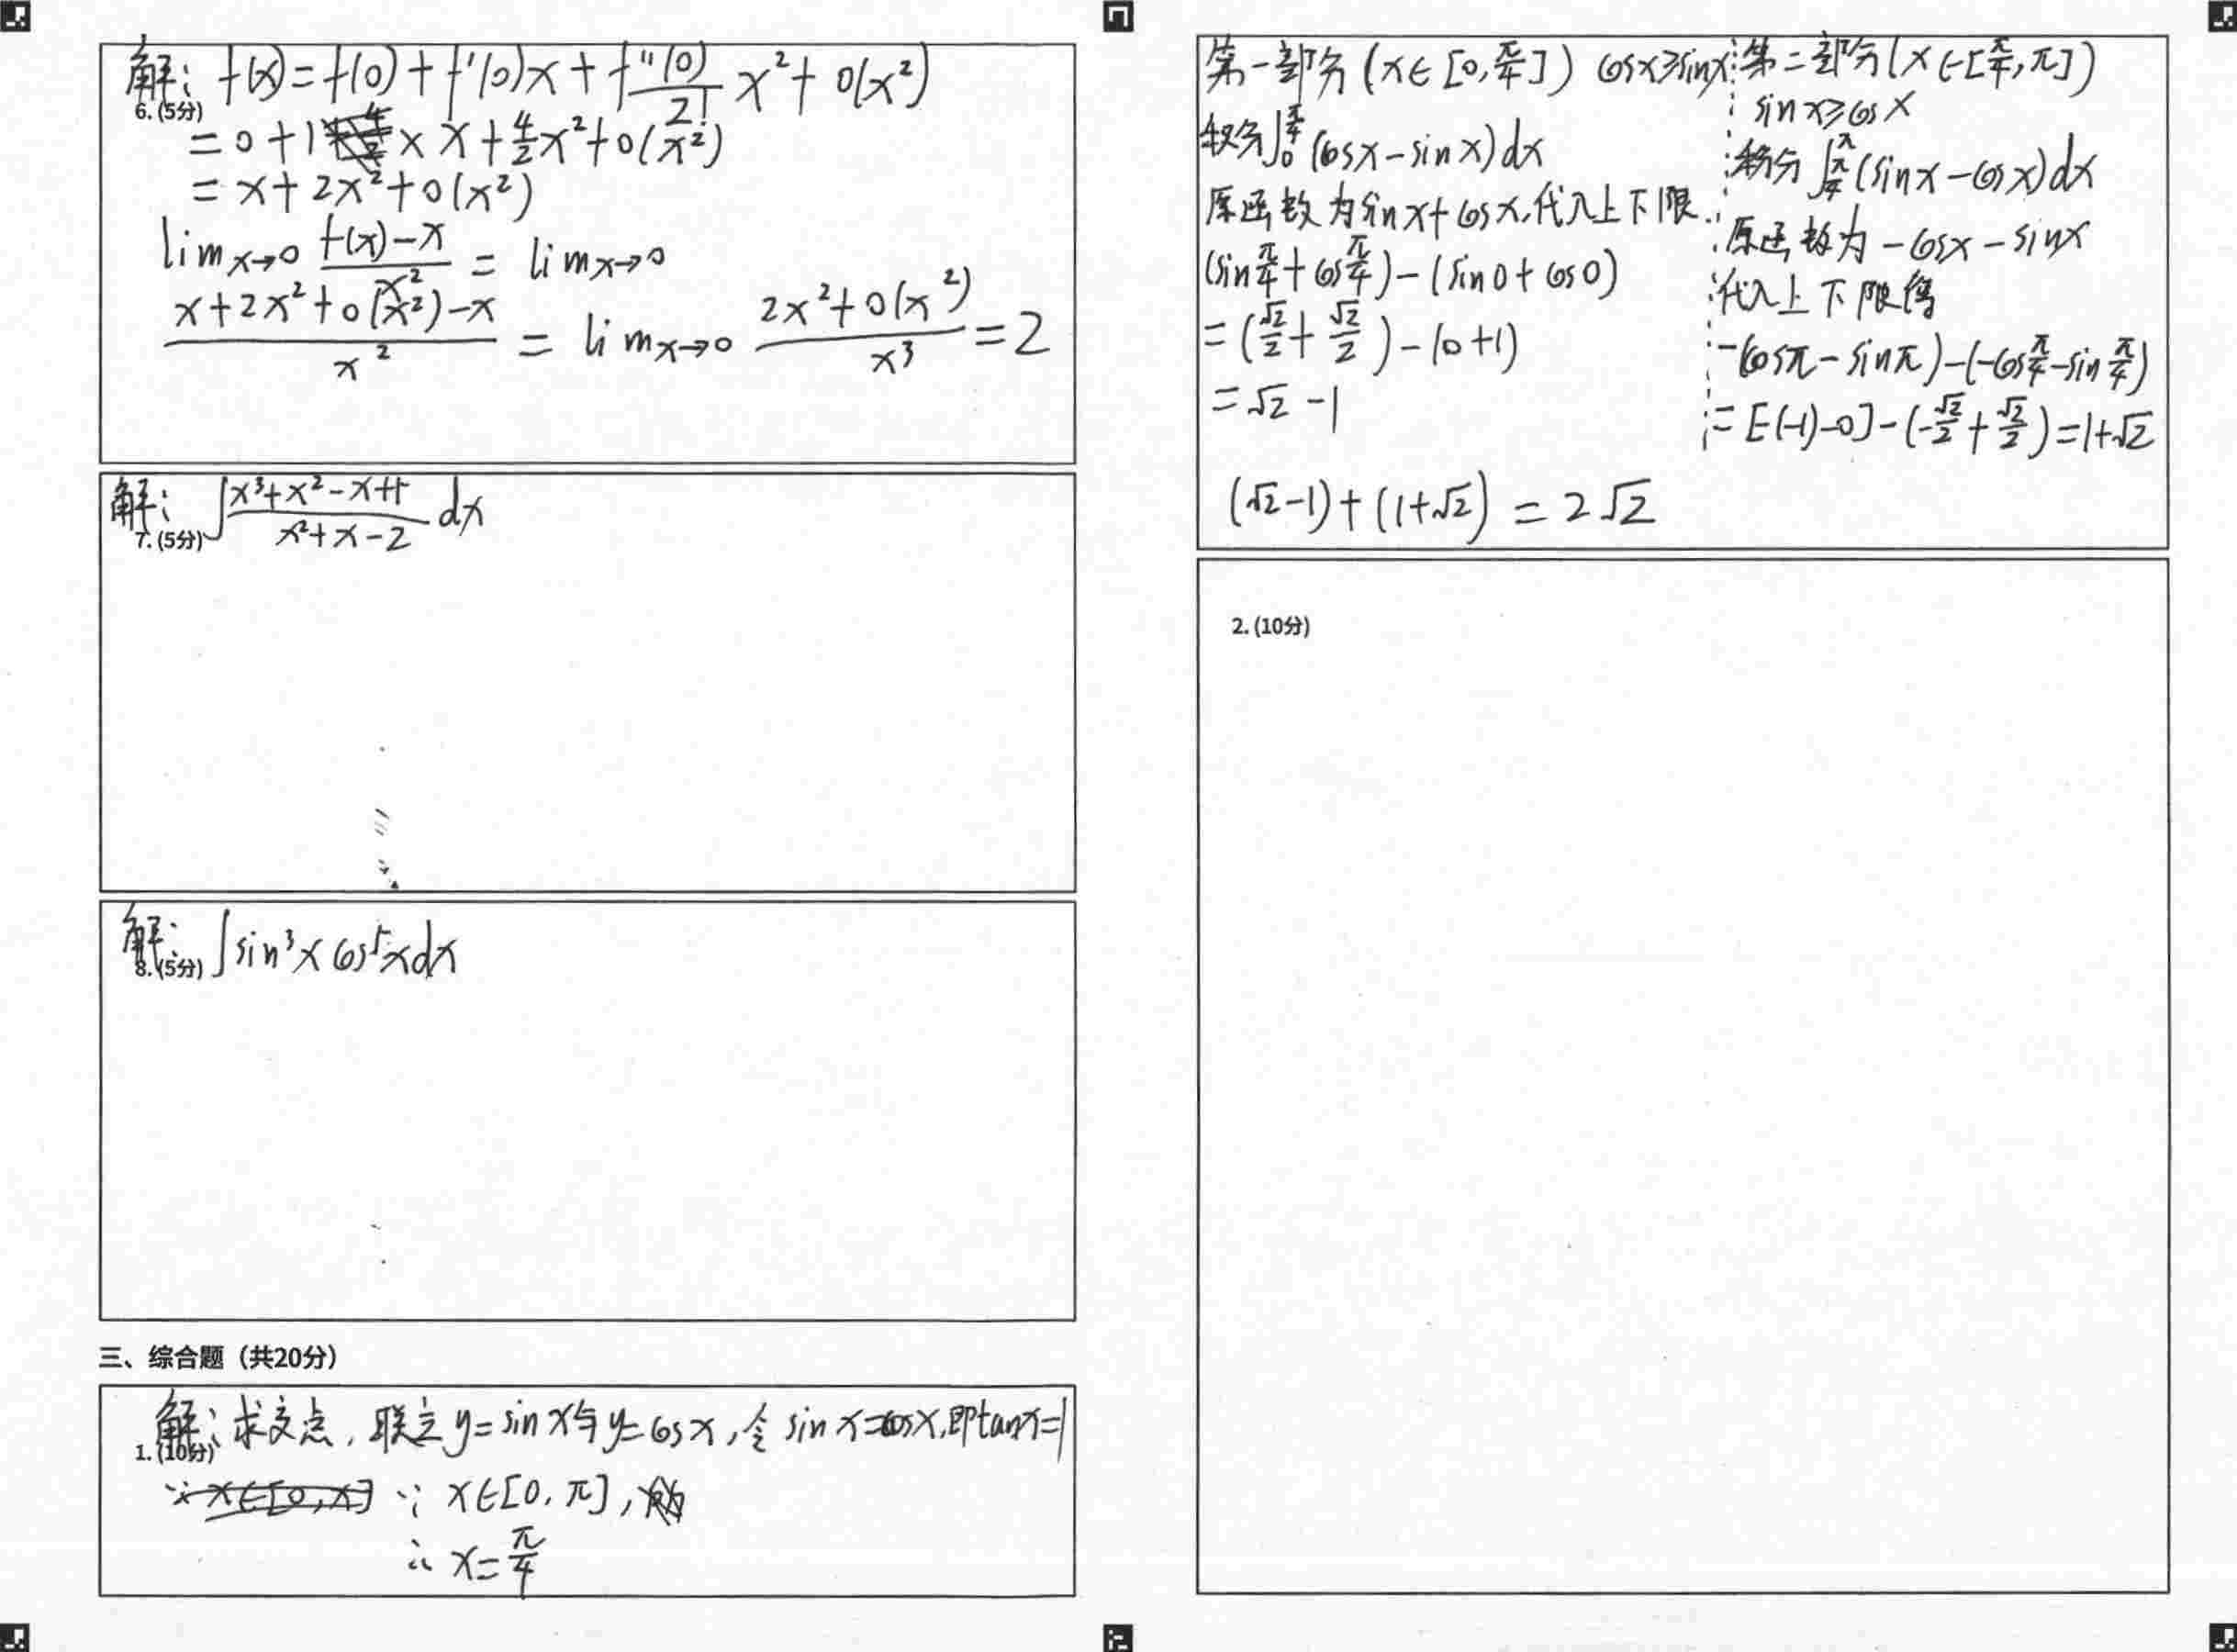 解: f(x)=f(0)+f'(0)x+f''(0)/2! x²+o(x²)
6. (5分)
=0+1×x+4/2x²+o(x²)
=x+2x²+o(x²)
lim x→0 f(x)-x/x² = lim x→0
x+2x²+o(x²)-x/x² = lim x→0 2x²+o(x²)/x³ =2
解: ∫x³+x²-x+1/x²+x-2 dx
7. (5分)
解: ∫sin³x cos⁵xdx
8. (5分)
三、综合题（共20分）
解: 求交点, 联立y=sinx与y=cosx,令sinx=cosx,即tanx=1
1. (10分)
∵x∈[0,x] ∵ x∈[0,π],
∴ x=π/4
第一部分(x∈[0,π/4]) cosx≥sinx
积分∫0^π/4(cosx-sinx)dx
原函数为sinx+cosx,代入上下限
(sinπ/4+cosπ/4)-(sin0+cos0)
=(√2/2+√2/2)-(0+1)
=√2-1
第二部分(x∈[π/4,π])
sinx≥cosx
积分∫π/4^π(sinx-cosx)dx
原函数为-cosx-sinx
代入上下限得
-cosπ-sinπ)-(-cosπ/4-sinπ/4)
=[(-1)-0]-(-√2/2+√2/2)=1+√2
(√2-1)+(1+√2)=2√2
2. (10分)